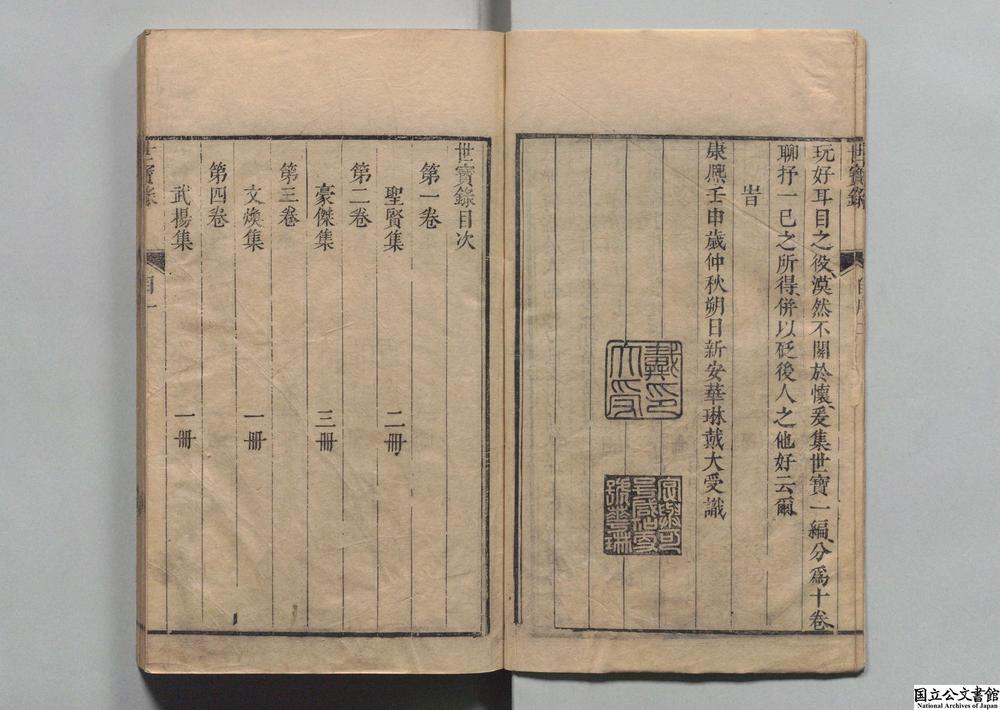 世寶錄
玩好耳目之役漠然不關於懷爰集世寶一編分爲十卷
聊抒一已之所得併以砭後人之他好云爾
旹
康熙壬申歲仲秋朔日新安華琳戴大受識
戴印
大受
世寶錄目次
第一卷
聖賢集 二冊
第二卷
豪傑集 三冊
第三卷
文煥集 一冊
第四卷
武揚集 一冊
世寶錄
目一
国立公文書館
National Archives of Japan